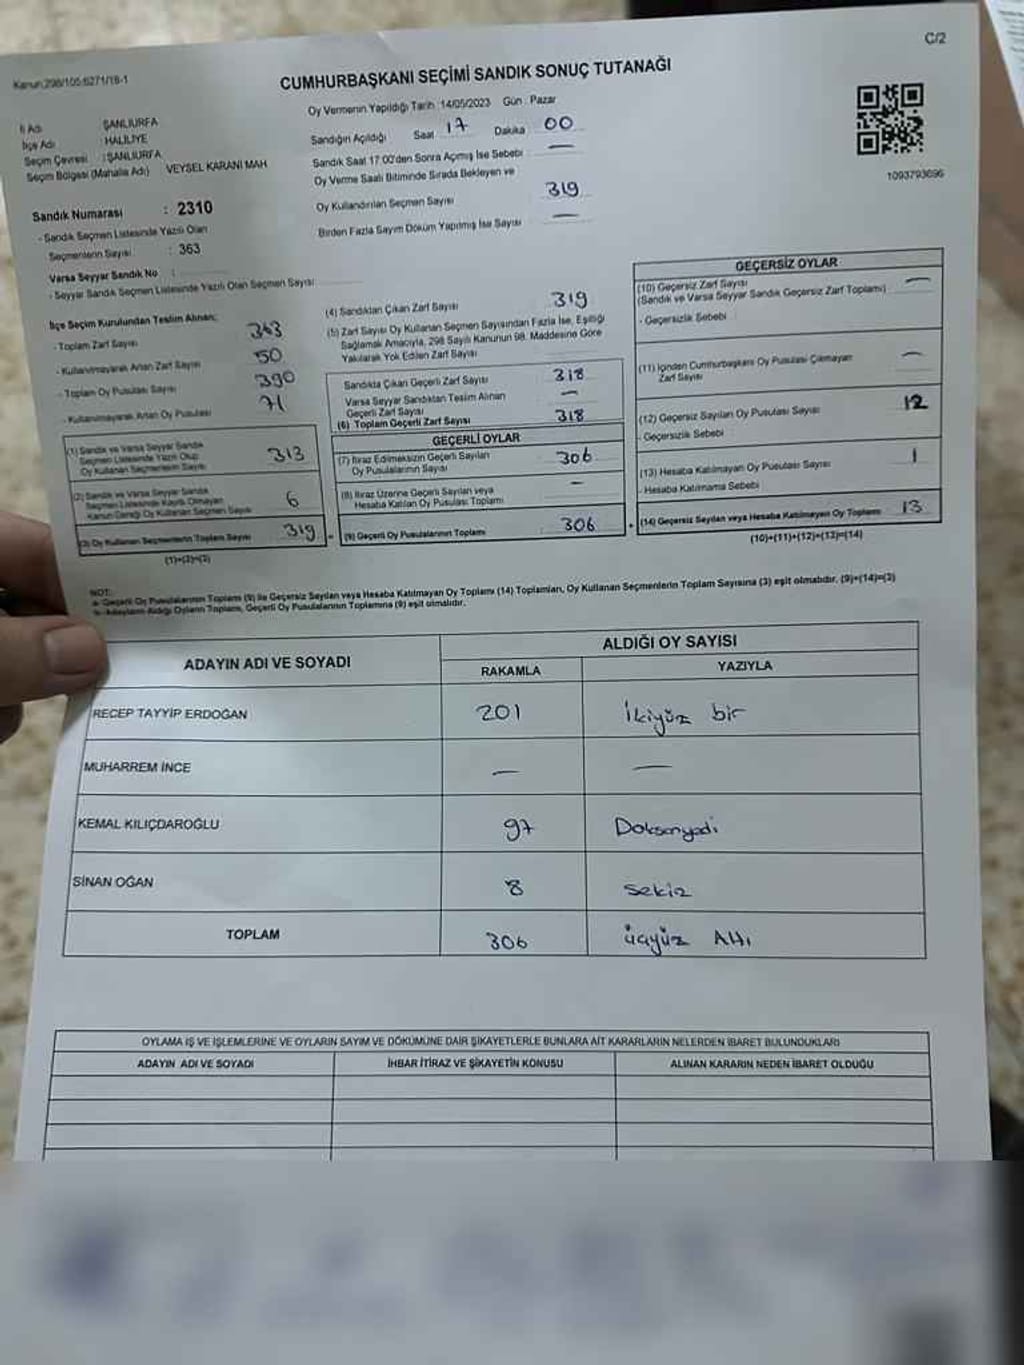 C/2
Kanun:298/105:6271/18-1
CUMHURBAŞKANI SEÇİMİ SANDIK SONUÇ TUTANAĞI
Oy Vermenin Yapıldığı Tarih :14/05/2023 Gün : Pazar
İl Adı : ŞANLIURFA
İlçe Adı : HALİLİYE
Seçim Çevresi : ŞANLIURFA
Seçim Bölgesi (Mahalle Adı) VEYSEL KARANİ MAH
Sandık Numarası : 2310
- Sandık Seçmen Listesinde Yazılı Olan
Seçmenlerin Sayısı : 363
Varsa Seyyar Sandık No :
- Seyyar Sandık Seçmen Listesinde Yazılı Olan Seçmen Sayısı
Sandığın Açıldığı Saat 17 Dakika 00
Sandık Saat 17.00'den Sonra Açmış İse Sebebi —
Oy Verme Saati Bitiminde Sırada Bekleyen ve
Oy Kullandırılan Seçmen Sayısı 319
Birden Fazla Sayım Döküm Yapılmış İse Sayısı —
1093793696
İlçe Seçim Kurulundan Teslim Alınan;
- Toplam Zarf Sayısı 363
- Kullanılmayarak Artan Zarf Sayısı 50
- Toplam Oy Pusulası Sayısı 390
- Kullanılmayarak Artan Oy Pusulası 71
(1) Sandık ve Varsa Seyyar Sandık
Seçmen Listesinde Yazılı Olup
Oy Kullanan Seçmenlerin Sayısı 313
(2) Sandık ve Varsa Seyyar Sandık
Seçmen Listesinde Kayıtlı Olmayan
Kanun Gereği Oy Kullanan Seçmen Sayısı 6
(3) Oy Kullanan Seçmenlerin Toplam Sayısı 319
(1)+(2)=(3)
(4) Sandıktan Çıkan Zarf Sayısı 319
(5) Zarf Sayısı Oy Kullanan Seçmen Sayısından Fazla İse, Eşitliği
Sağlamak Amacıyla, 298 Sayılı Kanunun 98. Maddesine Göre
Yakılarak Yok Edilen Zarf Sayısı
Sandıkta Çıkan Geçerli Zarf Sayısı 318
Varsa Seyyar Sandıktan Teslim Alınan
Geçerli Zarf Sayısı —
(6) Toplam Geçerli Zarf Sayısı 318
GEÇERLİ OYLAR
(7) İtiraz Edilmeksizin Geçerli Sayılan
Oy Pusulalarının Sayısı 306
(8) İtiraz Üzerine Geçerli Sayılan veya
Hesaba Katılan Oy Pusulası Toplamı —
(9) Geçerli Oy Pusulalarının Toplamı 306
GEÇERSİZ OYLAR
(10) Geçersiz Zarf Sayısı —
(Sandık ve Varsa Seyyar Sandık Geçersiz Zarf Toplamı)
- Geçersizlik Sebebi
(11) İçinden Cumhurbaşkanı Oy Pusulası Çıkmayan
Zarf Sayısı —
(12) Geçersiz Sayılan Oy Pusulası Sayısı 12
- Geçersizlik Sebebi
(13) Hesaba Katılmayan Oy Pusulası Sayısı 1
- Hesaba Katılmama Sebebi
(14) Geçersiz Sayılan veya Hesaba Katılmayan Oy Toplamı 13
(10)+(11)+(12)+(13)=(14)
NOT:
a- Geçerli Oy Pusulalarının Toplamı (9) ile Geçersiz Sayılan veya Hesaba Katılmayan Oy Toplamı (14) Toplamları, Oy Kullanan Seçmenlerin Toplam Sayısına (3) eşit olmalıdır. (9)+(14)=(3)
b- Adayların Aldığı Oyların Toplamı, Geçerli Oy Pusulalarının Toplamına (9) eşit olmalıdır.
ADAYIN ADI VE SOYADI
ALDIĞI OY SAYISI
RAKAMLA YAZIYLA
RECEP TAYYİP ERDOĞAN 201 İkiyüz bir
MUHARREM İNCE — —
KEMAL KILIÇDAROĞLU 97 Doksanyedi
SİNAN OĞAN 8 Sekiz
TOPLAM 306 üçyüz Altı
OYLAMA İŞ VE İŞLEMLERİNE VE OYLARIN SAYIM VE DÖKÜMÜNE DAİR ŞİKAYETLERLE BUNLARA AİT KARARLARIN NELERDEN İBARET BULUNDUKLARI
ADAYIN ADI VE SOYADI İHBAR İTİRAZ VE ŞİKAYETİN KONUSU ALINAN KARARIN NEDEN İBARET OLDUĞU